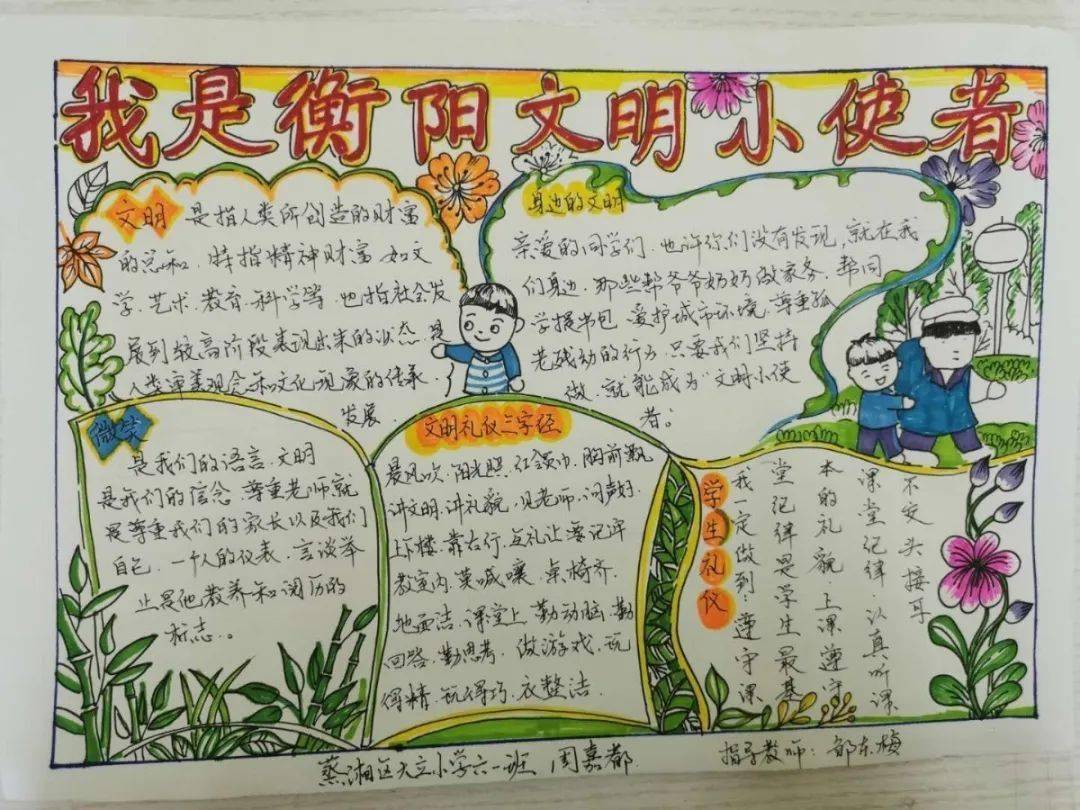 我是衡阳文明小使者
文明 是指人类所创造的财富
的总和.特指精神财富.如文
学.艺术.教育.科学等.也指社会发
展到较高阶段表现出来的状态.是
人类审美观念和文化现象的传承.
发展.
身边的文明
亲爱的同学们.也许你们没有发现.就在我
们身边.那些帮爷爷奶奶做家务.帮同
学提书包.爱护城市环境.尊重孤
老残幼的行为.只要我们坚持
做.就能成为“文明小使
者。
微笑
是我们的语言.文明
是我们的信念.尊重老师就
是尊重我们的家长以及我们
自己.一个人的仪表.言谈举
止是他教养和阅历的
标志。
文明礼仪三字经
晨风吹.阳光照.红领巾.胸前飘
讲文明.讲礼貌.见老师.问声好.
上下楼.靠右行.点礼让.要记牢
教室内.莫喊嚷.桌椅齐.
地面洁.课堂上.勤动脑.勤
回答.勤思考.做游戏.玩
得精.玩得巧.衣整洁.
学生礼仪
我一定做到:遵守课
堂纪律是学生最基
本的礼貌.上课遵守
课堂纪律.认真听课
不交头接耳
蒸湘区大立小学六一班 周嘉都
指导教师：邹东桢